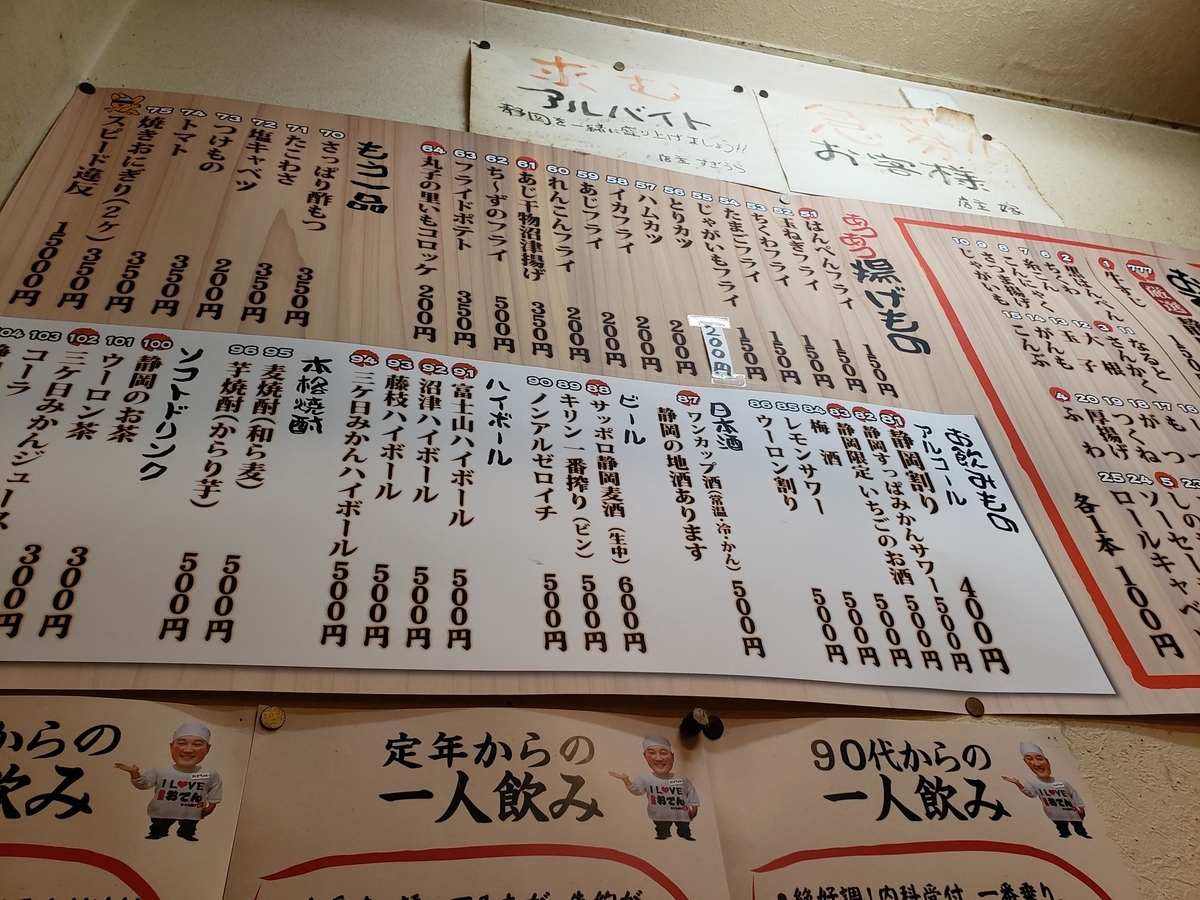 求む
アルバイト
静岡を一緒に盛り上げましょう!!
店主 すぎうら
急募!!
お客様
店主 嫁
777
厳選
1 牛すじ
2 黒はんぺん
6 ちくわ
7 糸こんにゃく
9 さつま揚げ
10 じゃがいも
11 なると
さんかく
3 大根
12
13 玉子
14 がんも
15 こんぶ
16
17
18
19 つくね
20 厚揚げ
4 ふわ
23
5 ソーセージ
24
25 ロールキャベ
各1本 100円
あつあつ揚げもの
51 はんぺんフライ 150円
52 玉ねぎフライ 150円
53 ちくわフライ 150円
54 たまごフライ 150円
55 じゃがいもフライ 200円
56 とりカツ 200円
57 ハムカツ 200円
58 イカフライ 200円
59 あじフライ 200円
60 れんこんフライ 200円
61 あじ干物沼津揚げ 350円
62 ち~ずのフライ 500円
63 フライドポテト 350円
64 丸子の里いもコロッケ 200円
もう一品
70 さっぱり酢もつ 350円
71 たこわさ 350円
72 塩キャベツ 200円
73 つけもの 350円
74 トマト 350円
75 焼きおにぎり(2ケ) 350円
スピード違反 15000円
お飲みもの
アルコール
81 静岡割り 400円
82 静岡すっぱみかんサワー 500円
83 静岡限定 いちごのお酒 500円
84 梅酒 500円
85 レモンサワー 500円
86 ウーロン割り 500円
日本酒
87 ワンカップ酒(常温・冷・かん) 500円
静岡の地酒あります
ビール
88 サッポロ静岡麦酒(生中) 600円
89 キリン一番搾り(ビン) 500円
90 ノンアルゼロイチ 500円
ハイボール
91 富士山ハイボール 500円
92 沼津ハイボール 500円
93 藤枝ハイボール 500円
94 三ケ日みかんハイボール 500円
本格焼酎
95 麦焼酎(和ら麦) 500円
96 芋焼酎(からり芋) 500円
ソフトドリンク
100 静岡のお茶
101 ウーロン茶
102 三ケ日みかんジュース 300円
103 コーラ 300円
104
からの
飲み
I LOVE
おでん
定年からの
一人飲み
I LOVE
おでん
90代からの
一人飲み
I LOVE
おでん
●絶好調!内科受付、一番乗り。